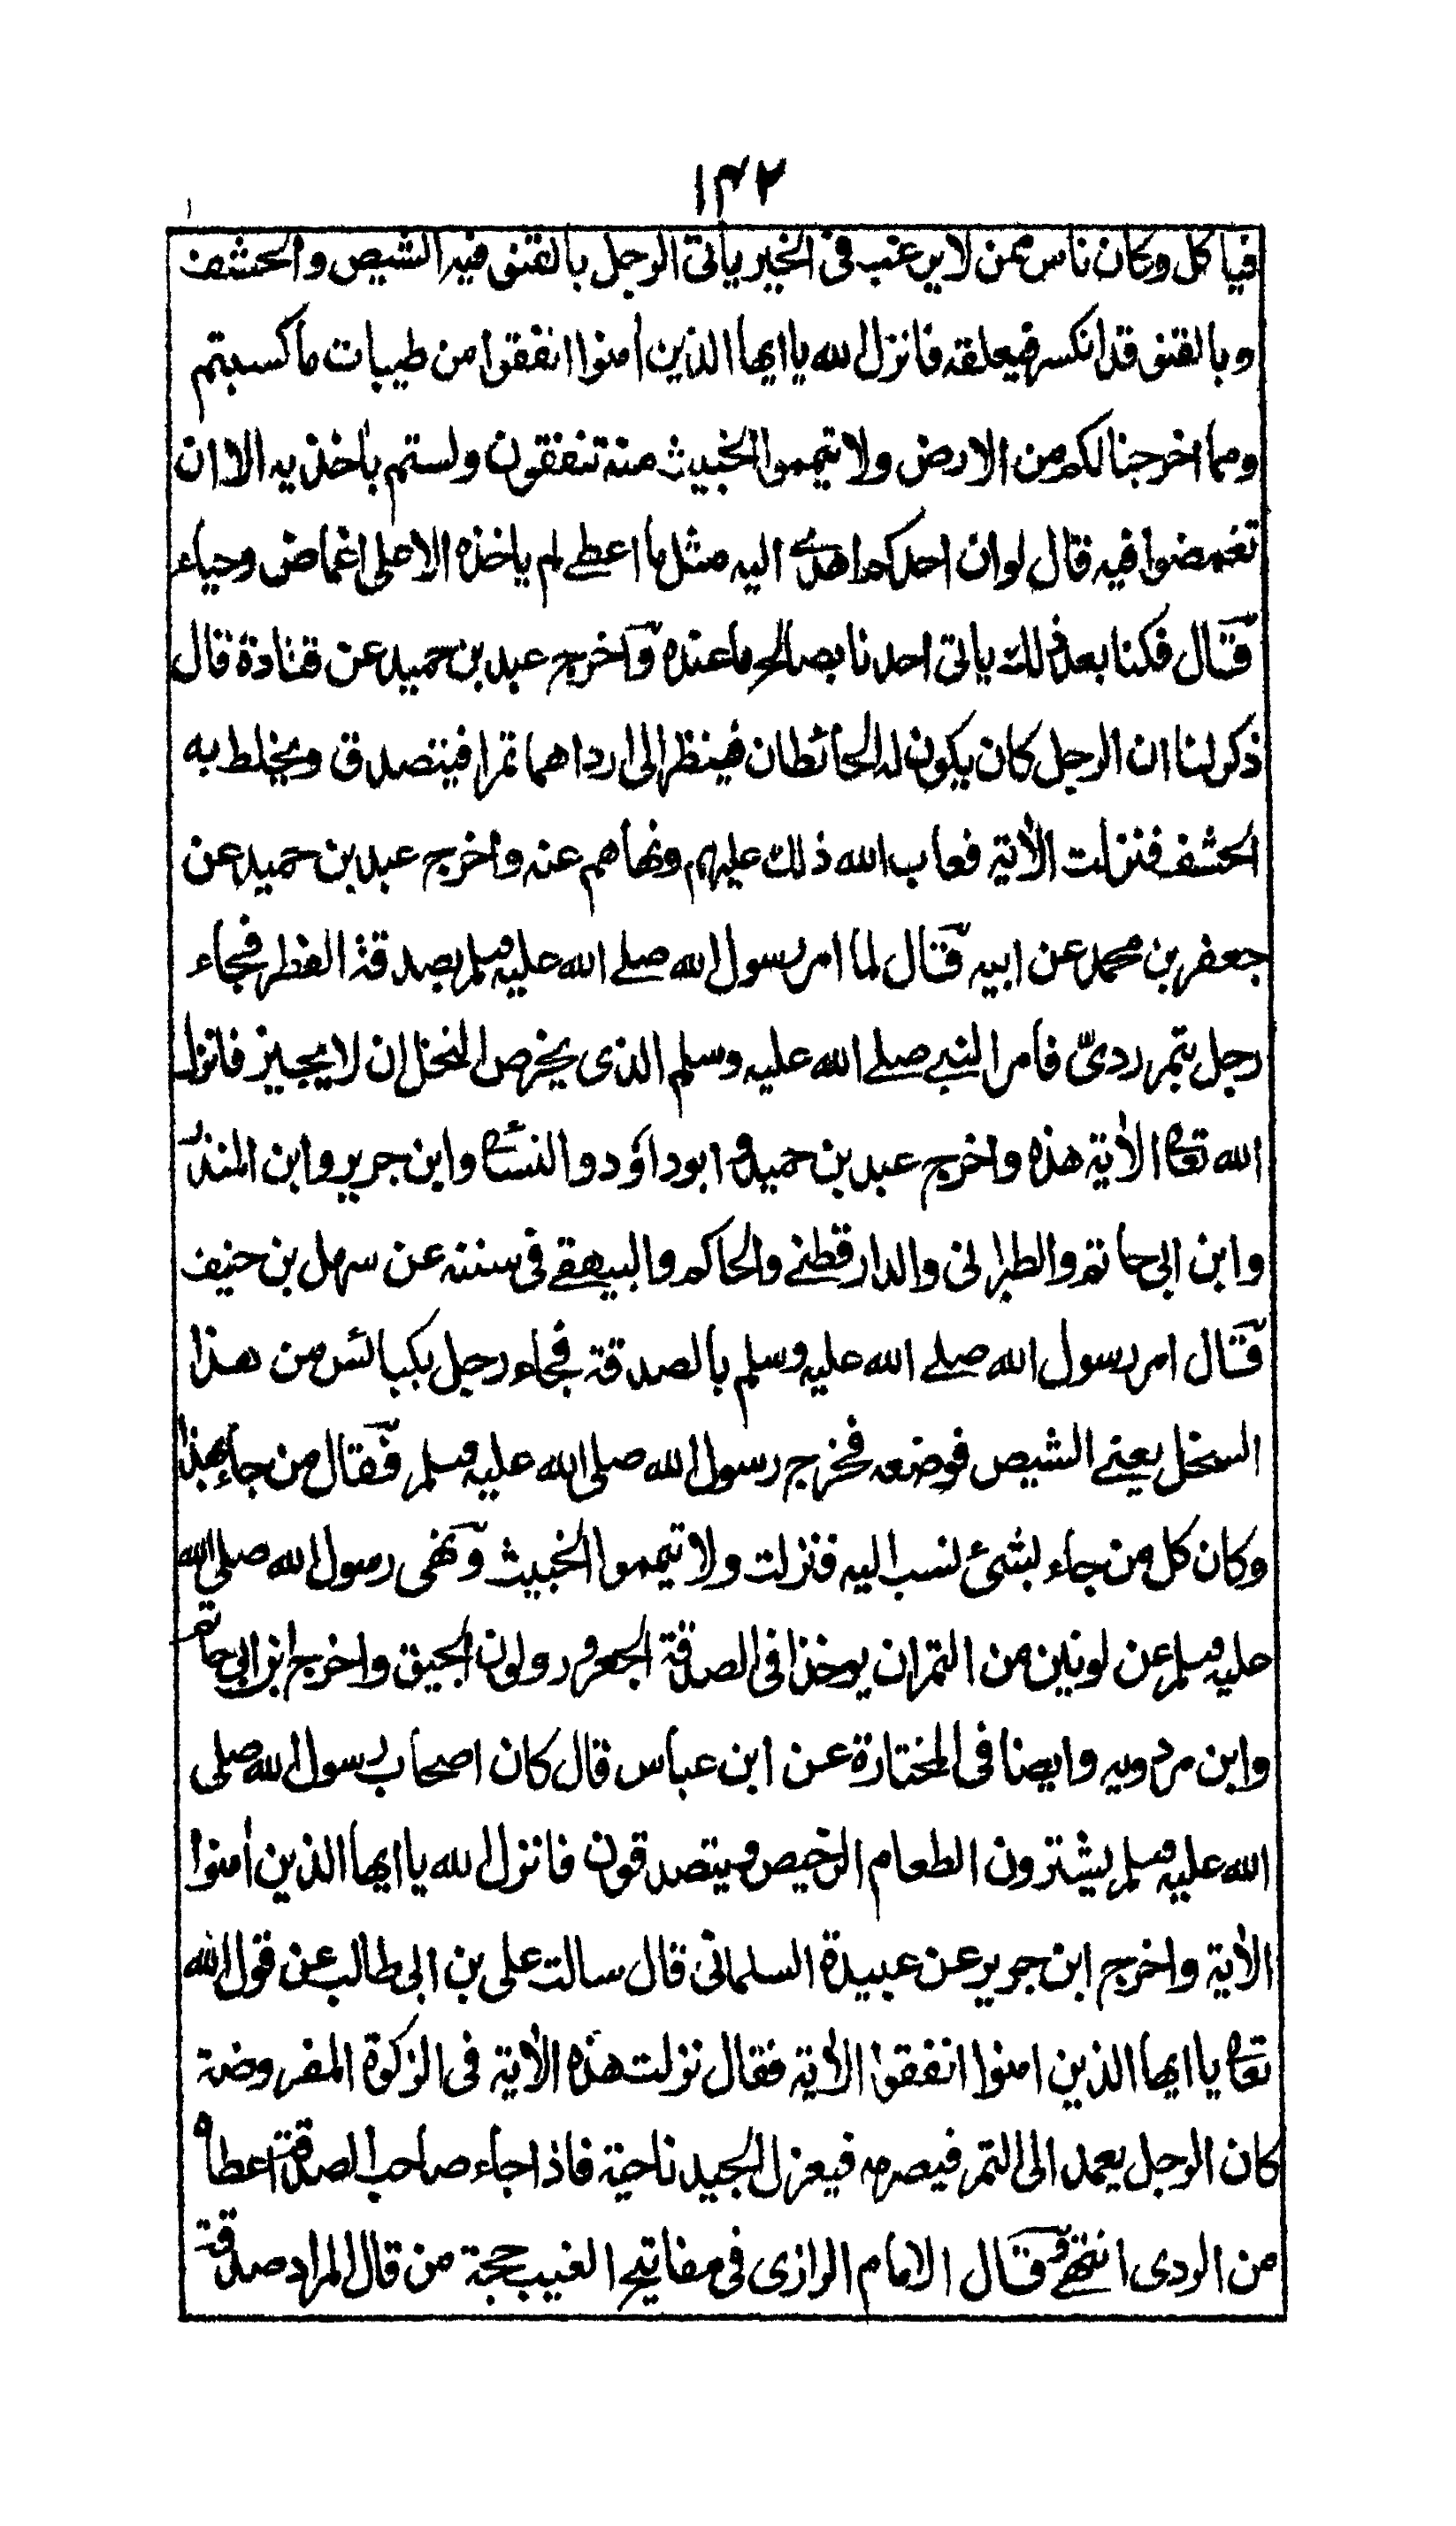 ١٤٢
فياكل وكان ناس ممن لا يرغب فى الخير ياتى الرجل بالقنو فيه الشيص والحشف
وبالقنو قد انكسر فيعلقه فانزل الله يا ايها الذين اٰمنوا انفقوا من طيبات ما كسبتم
ومما اخرجنا لكم من الارض ولا تيمموا الخبيث منه تنفقون ولستم باٰخذيه الا ان
تغمضوا فيه قال لو ان احدكم اهدے اليه مثل ما اعطے لم ياخذه الا على اغماض وحياء
قال فكنا بعد ذلك ياتى احدنا بصالح ما عنده واخرج عبد بن حميد عن قتادة قال
ذكر لنا ان الرجل كان يكون له الحائطان فينظر الى ارداهما تمرا فيتصدق ويخلط به
الحشف فنزلت الاٰية فعاب الله ذلك عليهم ونهاهم عنه واخرج عبد بن حميد عن
جعفر بن محمد عن ابيه قال لما امر رسول الله صلے الله عليه وسلم بصدقة الفطر فجاء
رجل بتمر ردىّ فامر النبے صلے الله عليه وسلم الذى يخرص النخل ان لا يجيز فانزل
الله تعا الاٰية هذه واخرج عبد بن حميد وابو داؤد والنسائے وابن جرير وابن المنذر
وابن ابى حاتم والطبرانى والدارقطنے والحاكم والبيهقے فى سننه عن سهل بن حنيف
قال امر رسول الله صلے الله عليه وسلم بالصدقة فجاء رجل بكبائس من هذا
السخل يعنے الشيص فوضعه فخرج رسول الله صلى الله عليه وسلم فقال من جاء بهذا
وكان كل من جاء بشئ نسب اليه فنزلت ولا تيمموا الخبيث ونهى رسول الله صلى الله
عليه وسلم عن لونين من التمر ان يوخذا فى الصدقة الجعرور ولون الحبيق واخرج ابن ابى حاتم
وابن مردويه وايضا فى المختارة عن ابن عباس قال كان اصحاب رسول الله صلى
الله عليه وسلم يشترون الطعام الرخيص ويتصدقون فانزل الله يا ايها الذين اٰمنوا
الاٰية واخرج ابن جرير عن عبيدة السلمانى قال سالت على بن ابى طالب عن قول الله
تعا يا ايها الذين امنوا انفقوا الاٰية فقال نزلت هذه الاٰية فى الزكوة المفروضة
كان الرجل يعمد الى التمر فيصرمه فيعزل الجيد ناحية فاذا جاء صاحب الصدقة اعطاه
من الردى انتهے وقال الامام الرازى فى مفاتيح الغيب حجة من قال المراد صدقة